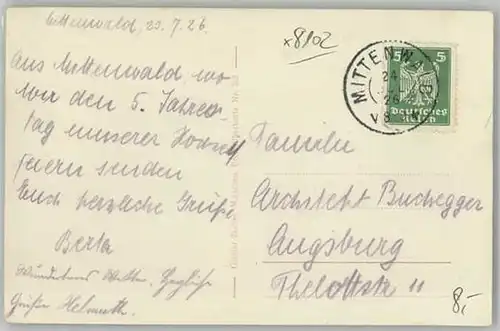 Mittenwald, 23.7.26.
x8102
Aus Mittenwald wo
wir den 5. Jahres
tag unserer Hochzeit
feiern senden
Euch herzliche Grüße
Berta
Wunderbares Wetter. Herzliche
Grüße Helmuth.
MITTENWALD
24
26
V8
5 5
Deutsches
Reich
Familie
Architekt Buchegger
Augsburg
Thelottstr 11
8,-